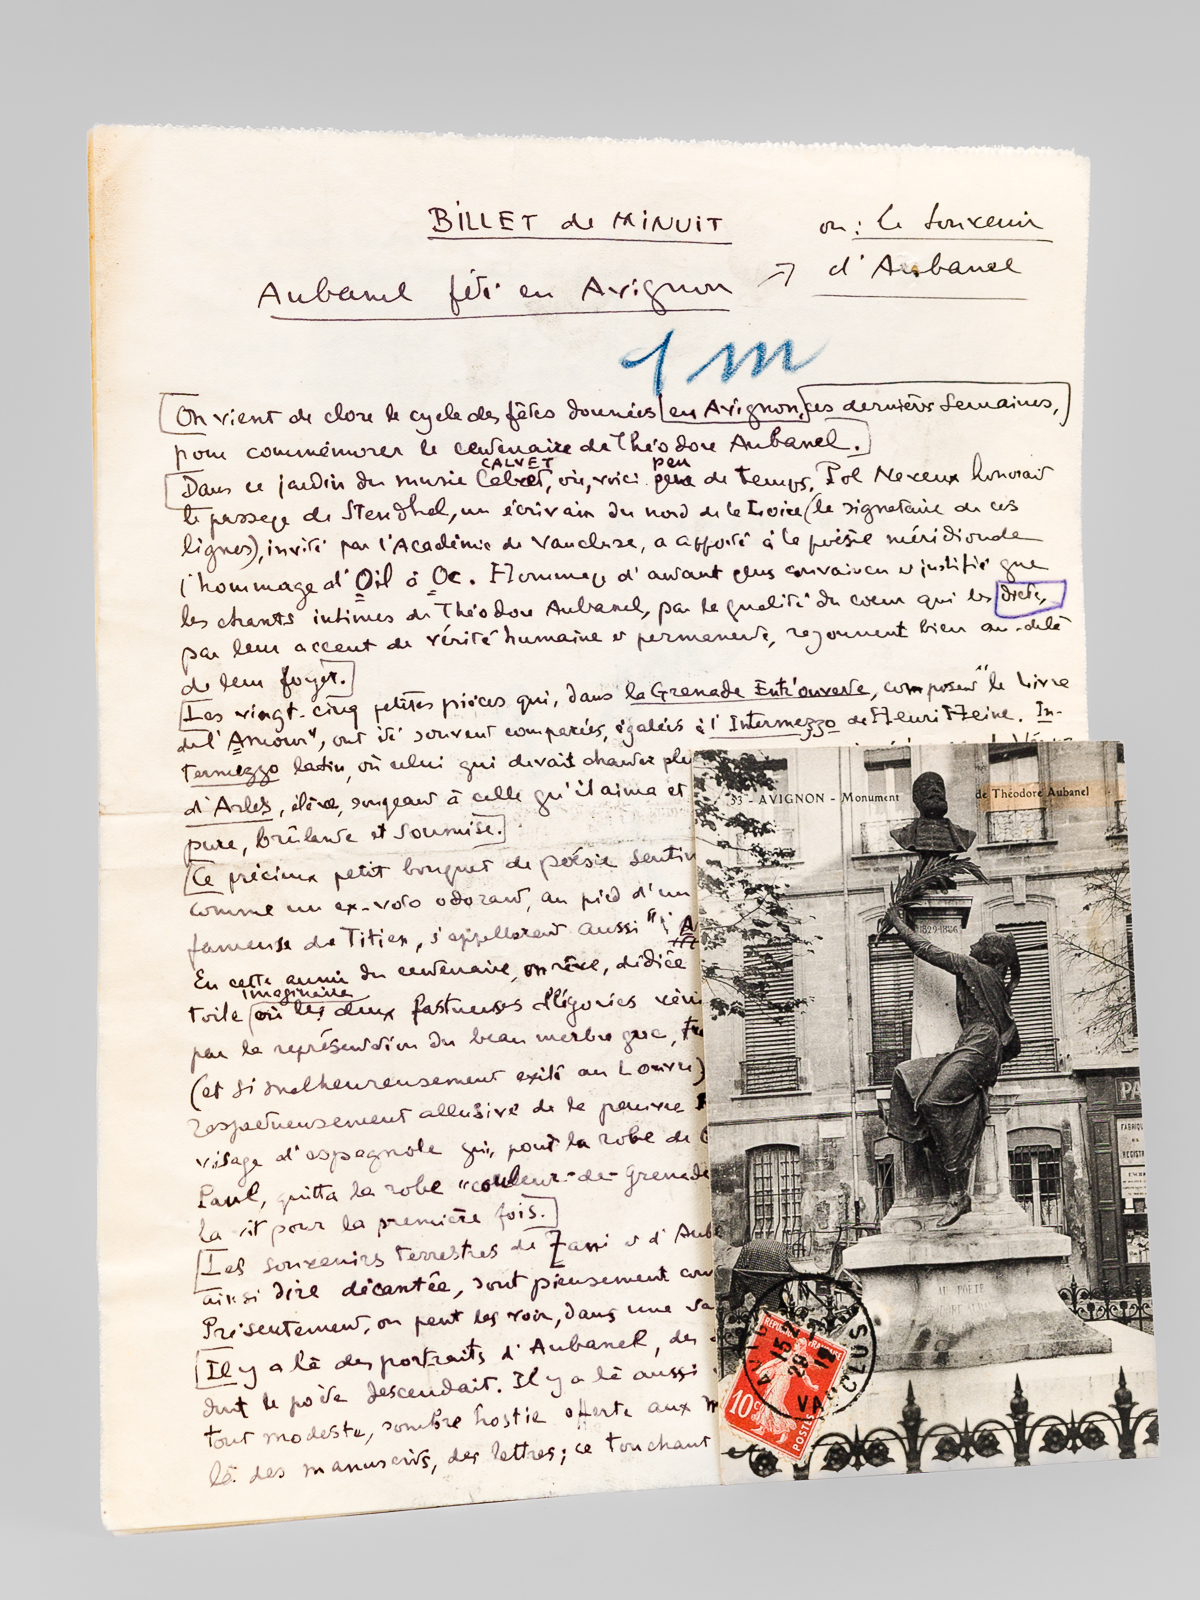 BILLET de MINUIT
ou : le Souvenir
d'Aubanel
Aubanel fêté en Avignon
1 m
On vient de clore le cycle des fêtes données en Avignon, ces dernières semaines,
pour commémorer le centenaire de Théodore Aubanel.
CALVET peu
Dans ce jardin du musée où, voici de temps, Pol Neveux honorait
le passage de Stendhal, un écrivain du nord de la Loire (le signataire de ces
lignes), invité par l'Académie de Vaucluse, a apporté à la poésie méridionale
l'hommage d'Oil à Oc. Hommage d'autant plus convaincu et justifié que
les chants intimes de Théodore Aubanel, par la qualité du coeur qui les dicte,
par leur accent de vérité humaine et permanente, rayonnent bien au-delà
de leur foyer.
Les vingt-cinq petites pièces qui, dans la Grenade Entr'ouverte, composent "le Livre
de l'Amour", ont été souvent comparées, égalées à l'Intermezzo de Henri Heine. In-
termezzo latin, où celui qui devait chanter plu
d'Arles, élève, songeant à celle qu'il aima et
pure, brûlante et soumise.
Ce précieux petit bouquet de poésie sentim
comme un ex-voto odorant, au pied d'un
fameuse de Titien, s'appelleraient aussi "l'A
En cette année du centenaire, on rêve, dédiée
imaginaire
toile où les deux fastueuses allégories
par la représentation du beau marbre grec,
(et si malheureusement exilé au Louvre)
respectueusement allusive de la pauvre
visage d'espagnole qui, pour la robe de
Paul, quitta la robe "couleur-de-Grenade
la vit pour la première fois.
Les souvenirs terrestres de Zani et d'Aube
ainsi dire décantée, sont pieusement con
Présentement, on peut les voir, dans une
Il y a là des portraits d'Aubanel, des
dont le poète descendait. Il y a là aussi
tout modeste, sombre hostie offerte aux
là des manuscrits, des lettres ; ce touchant
33 - AVIGNON - Monument de Théodore Aubanel
1829-1886
AU POÈTE
PA
FABRIQUE
DE
REGISTR
10
POSTES
15
29
12
VAUCLUSE